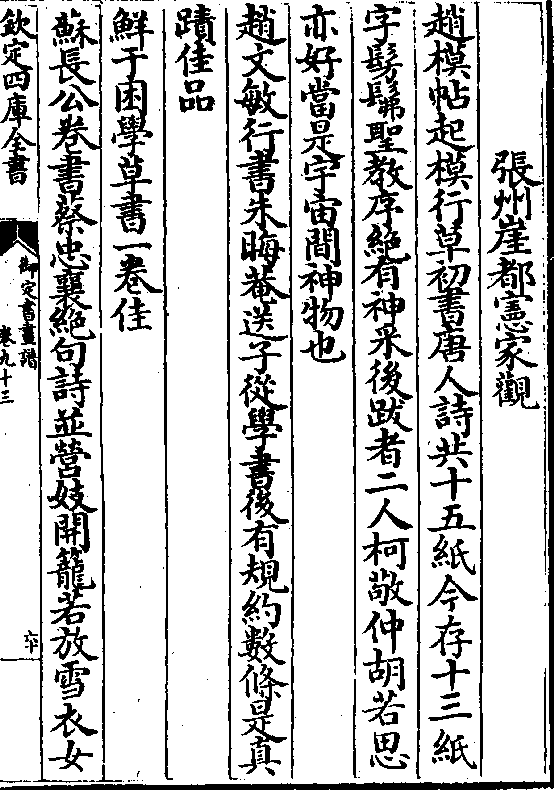 張州崖都憲家觀
趙模帖起模行草初書唐人詩共十五紙今存十三紙
字髣髴聖教序絶有神采後跋者二人柯敬仲胡若思
亦好當是宇宙間神物也
趙文敏行書朱晦菴送子從學書後有規約數條是真
蹟佳品
鮮于困學草書一卷佳
蘇長公卷書蔡忠襄絶句詩並營妓開籠若放雪衣女
欽定四庫全書
御定書畫譜
卷九十三
六十